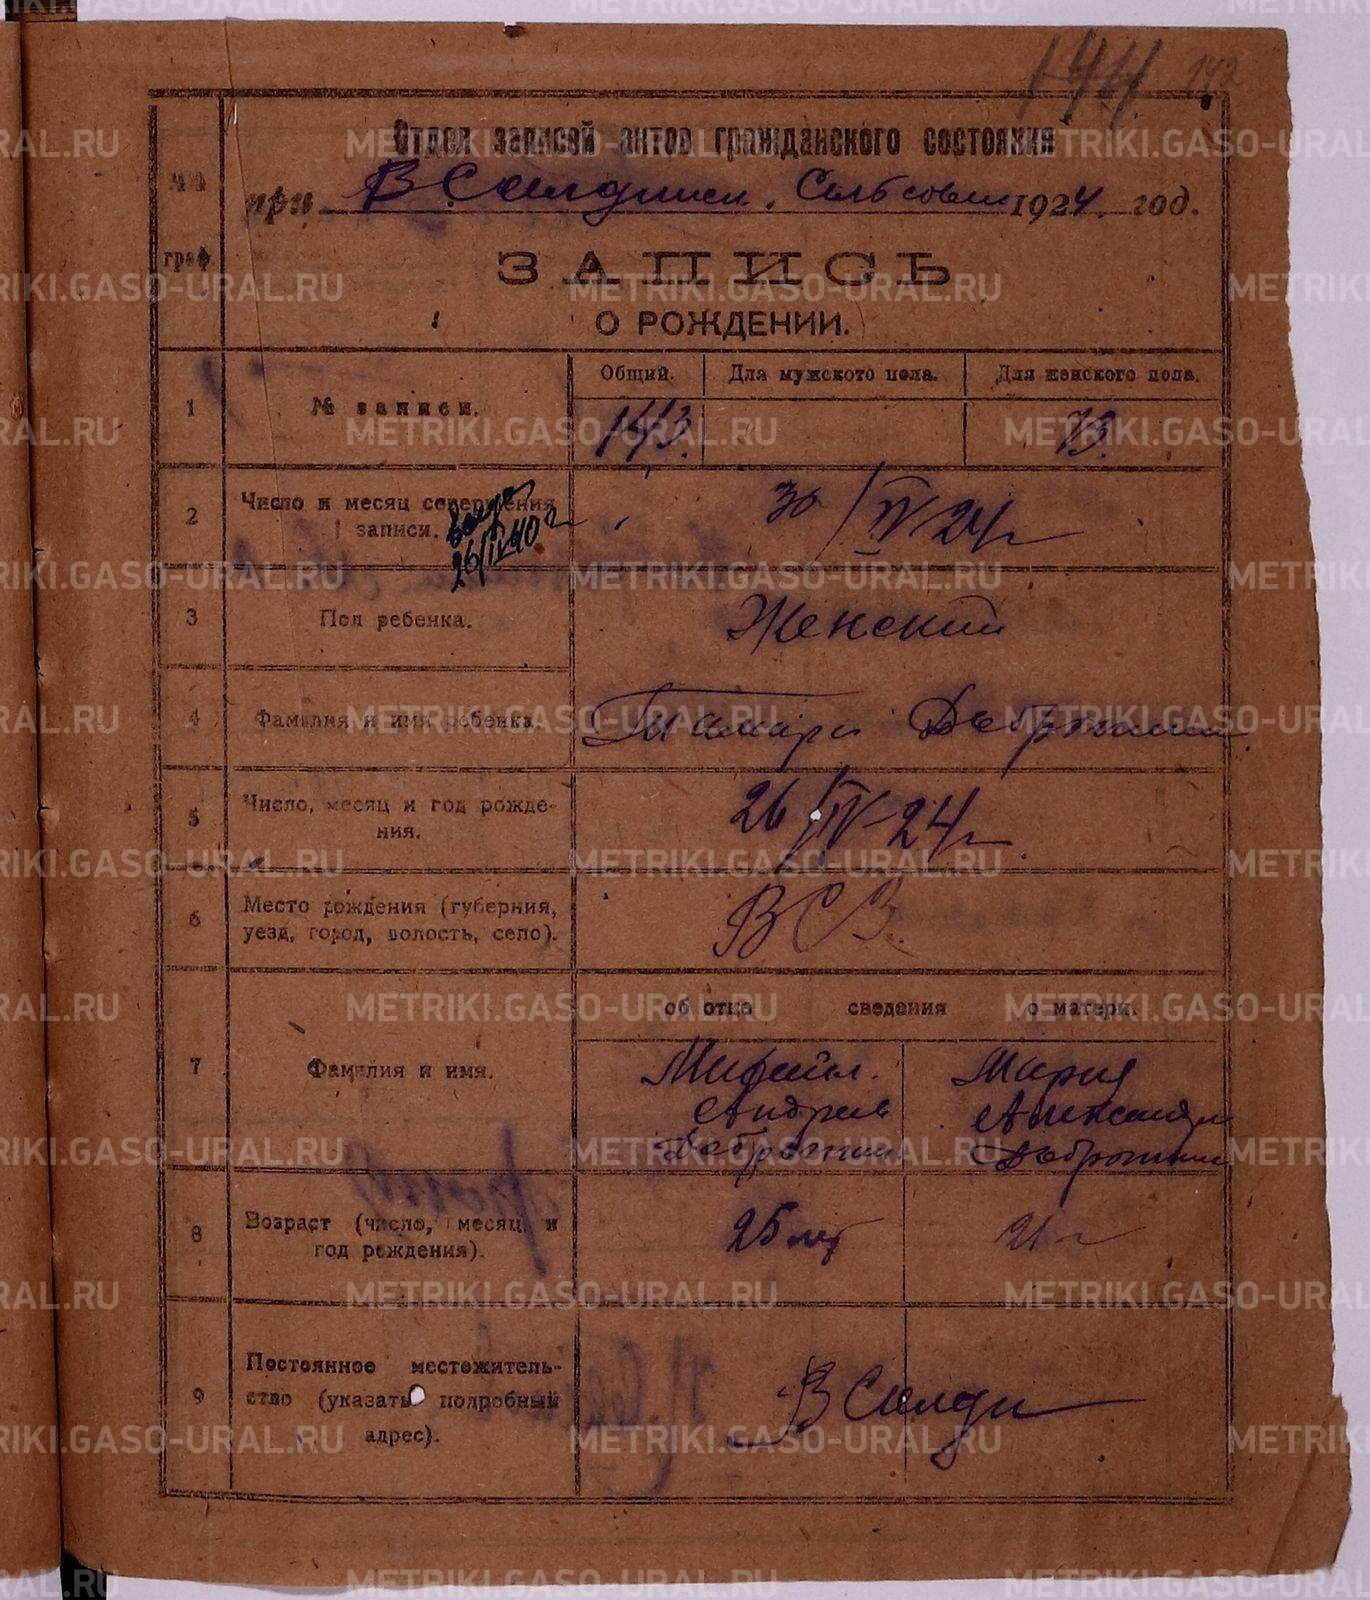 144. 142
Отдел записей актов гражданского состояния
№№ граф
при В Салдинск. Сельсовет 1924. год.
ЗАПИСЬ
О РОЖДЕНИИ.
Общий. Для мужского пола. Для женского пола.
1 № записи. 143. 73.
2 Число и месяц совершения записи. 30/IV 24 г
26/IV 40 г
3 Пол ребенка. Женский
4 Фамилия и имя ребенка. Тамара
5 Число, месяц и год рождения. 26/IV-24 г.
6 Место рождения (губерния, уезд, город, волость, село). ВСЗ.
об отце сведения о матери.
7 Фамилия и имя.
Михаил. Мария
Андреев
8 Возраст (число, месяц и год рождения). 25 лет 21 г
9 Постоянное местожительство (указать подробный адрес). В Салда
METRIKI.GASO-URAL.RU